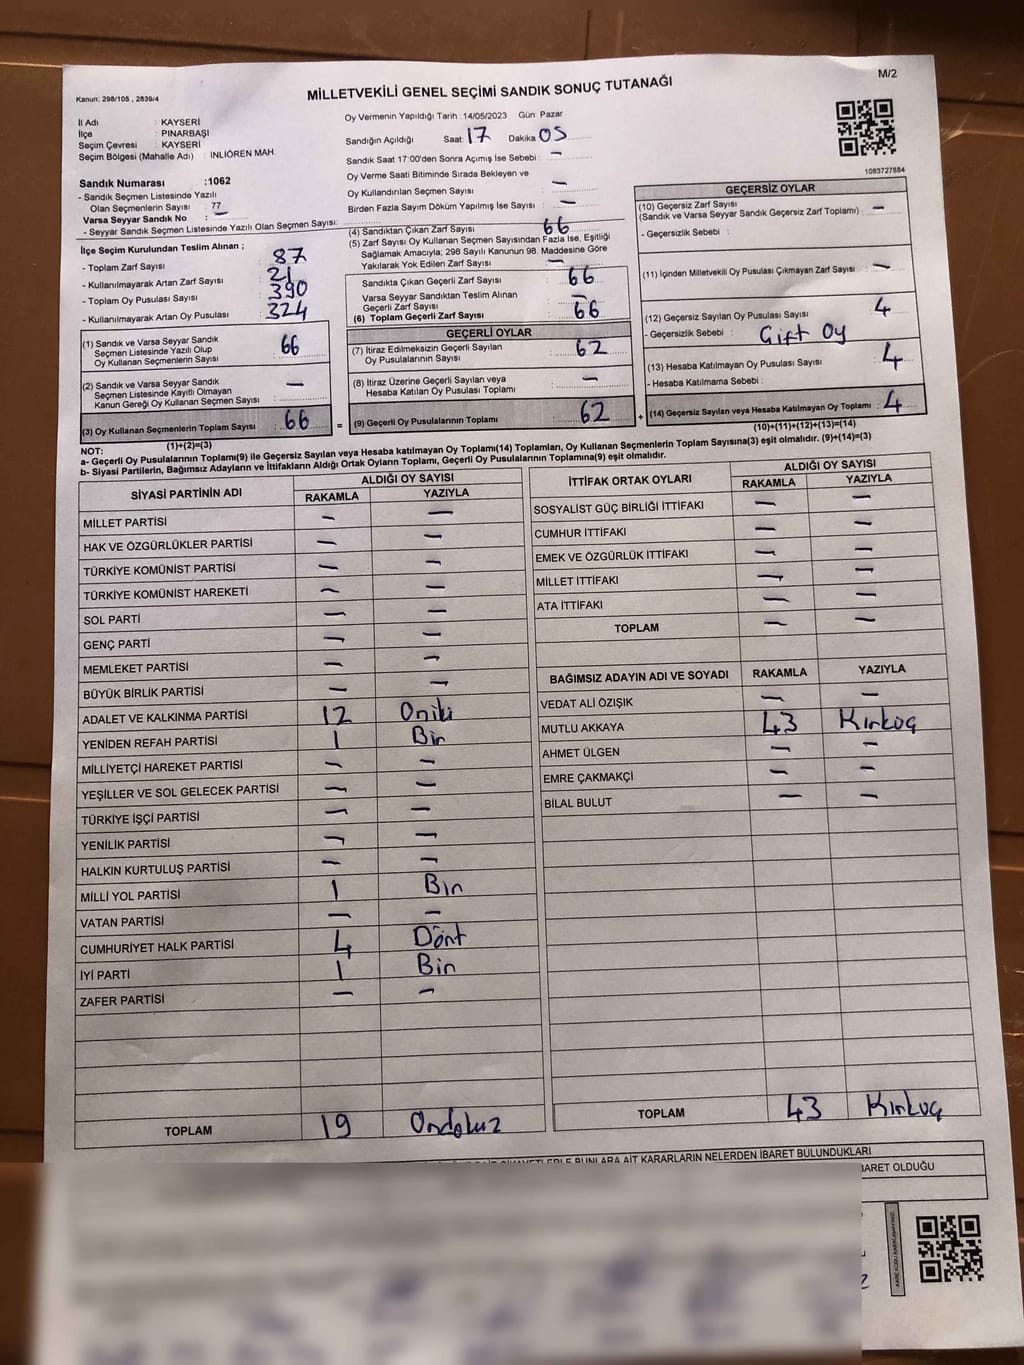 M/2
Kanun: 298/105 , 2839/4
MİLLETVEKİLİ GENEL SEÇİMİ SANDIK SONUÇ TUTANAĞI
İl Adı : KAYSERİ
İlçe : PINARBAŞI
Seçim Çevresi : KAYSERİ
Seçim Bölgesi (Mahalle Adı) : İNLİÖREN MAH.
Sandık Numarası :1062
- Sandık Seçmen Listesinde Yazılı
Olan Seçmenlerin Sayısı : 77
Varsa Seyyar Sandık No : -
- Seyyar Sandık Seçmen Listesinde Yazılı Olan Seçmen Sayısı:
Oy Vermenin Yapıldığı Tarih :14/05/2023 Gün Pazar
Sandığın Açıldığı Saat: 17 Dakika 05
Sandık Saat 17:00'den Sonra Açımış İse Sebebi : -
Oy Verme Saati Bitiminde Sırada Bekleyen ve
Oy Kullandırılan Seçmen Sayısı : -
Birden Fazla Sayım Döküm Yapılmış İse Sayısı : -
1083727684
İlçe Seçim Kurulundan Teslim Alınan ;
- Toplam Zarf Sayısı : 87
- Kullanılmayarak Artan Zarf Sayısı : 21
- Toplam Oy Pusulası Sayısı : 390
- Kullanılmayarak Artan Oy Pusulası : 324
(1) Sandık ve Varsa Seyyar Sandık
Seçmen Listesinde Yazılı Olup
Oy Kullanan Seçmenlerin Sayısı : 66
(2) Sandık ve Varsa Seyyar Sandık
Seçmen Listesinde Kayıtlı Olmayan
Kanun Gereği Oy Kullanan Seçmen Sayısı : -
(3) Oy Kullanan Seçmenlerin Toplam Sayısı : 66
(1)+(2)=(3)
(4) Sandıktan Çıkan Zarf Sayısı : 66
(5) Zarf Sayısı Oy Kullanan Seçmen Sayısından Fazla İse, Eşitliği
Sağlamak Amacıyla, 298 Sayılı Kanunun 98. Maddesine Göre
Yakılarak Yok Edilen Zarf Sayısı : -
Sandıkta Çıkan Geçerli Zarf Sayısı : 66
Varsa Seyyar Sandıktan Teslim Alınan
Geçerli Zarf Sayısı : -
(6) Toplam Geçerli Zarf Sayısı : 66
GEÇERLİ OYLAR
(7) İtiraz Edilmeksizin Geçerli Sayılan
Oy Pusulalarının Sayısı : 62
(8) İtiraz Üzerine Geçerli Sayılan veya
Hesaba Katılan Oy Pusulası Toplamı : -
= (9) Geçerli Oy Pusulalarının Toplamı : 62
GEÇERSİZ OYLAR
(10) Geçersiz Zarf Sayısı
(Sandık ve Varsa Seyyar Sandık Geçersiz Zarf Toplamı) : -
- Geçersizlik Sebebi :
(11) İçinden Milletvekili Oy Pusulası Çıkmayan Zarf Sayısı : -
(12) Geçersiz Sayılan Oy Pusulası Sayısı : 4
- Geçersizlik Sebebi : Çift Oy
(13) Hesaba Katılmayan Oy Pusulası Sayısı : 4
- Hesaba Katılmama Sebebi :
+ (14) Geçersiz Sayılan veya Hesaba Katılmayan Oy Toplamı : 4
(10)+(11)+(12)+(13)=(14)
NOT:
a- Geçerli Oy Pusulalarının Toplamı(9) ile Geçersiz Sayılan veya Hesaba katılmayan Oy Toplamı(14) Toplamları, Oy Kullanan Seçmenlerin Toplam Sayısına(3) eşit olmalıdır. (9)+(14)=(3)
b- Siyasi Partilerin, Bağımsız Adayların ve İttifakların Aldığı Ortak Oyların Toplamı, Geçerli Oy Pusulalarının Toplamına(9) eşit olmalıdır.
SİYASİ PARTİNİN ADI ALDIĞI OY SAYISI
RAKAMLA YAZIYLA
MİLLET PARTİSİ - -
HAK VE ÖZGÜRLÜKLER PARTİSİ - -
TÜRKİYE KOMÜNİST PARTİSİ - -
TÜRKİYE KOMÜNİST HAREKETİ - -
SOL PARTİ - -
GENÇ PARTİ - -
MEMLEKET PARTİSİ - -
BÜYÜK BİRLİK PARTİSİ - -
ADALET VE KALKINMA PARTİSİ 12 Oniki
YENİDEN REFAH PARTİSİ 1 Bir
MİLLİYETÇİ HAREKET PARTİSİ - -
YEŞİLLER VE SOL GELECEK PARTİSİ - -
TÜRKİYE İŞÇİ PARTİSİ - -
YENİLİK PARTİSİ - -
HALKIN KURTULUŞ PARTİSİ - -
MİLLİ YOL PARTİSİ 1 Bir
VATAN PARTİSİ - -
CUMHURİYET HALK PARTİSİ 4 Dört
İYİ PARTİ 1 Bir
ZAFER PARTİSİ - -
TOPLAM 19 Ondokuz
İTTİFAK ORTAK OYLARI ALDIĞI OY SAYISI
RAKAMLA YAZIYLA
SOSYALİST GÜÇ BİRLİĞİ İTTİFAKI - -
CUMHUR İTTİFAKI - -
EMEK VE ÖZGÜRLÜK İTTİFAKI - -
MİLLET İTTİFAKI - -
ATA İTTİFAKI - -
TOPLAM - -
BAĞIMSIZ ADAYIN ADI VE SOYADI RAKAMLA YAZIYLA
VEDAT ALİ ÖZIŞIK - -
MUTLU AKKAYA 43 Kırküç
AHMET ÜLGEN - -
EMRE ÇAKMAKÇİ - -
BİLAL BULUT - -
TOPLAM 43 Kırküç
BUNLARA AİT KARARLARIN NELERDEN İBARET BULUNDUKLARI
İBARET OLDUĞU